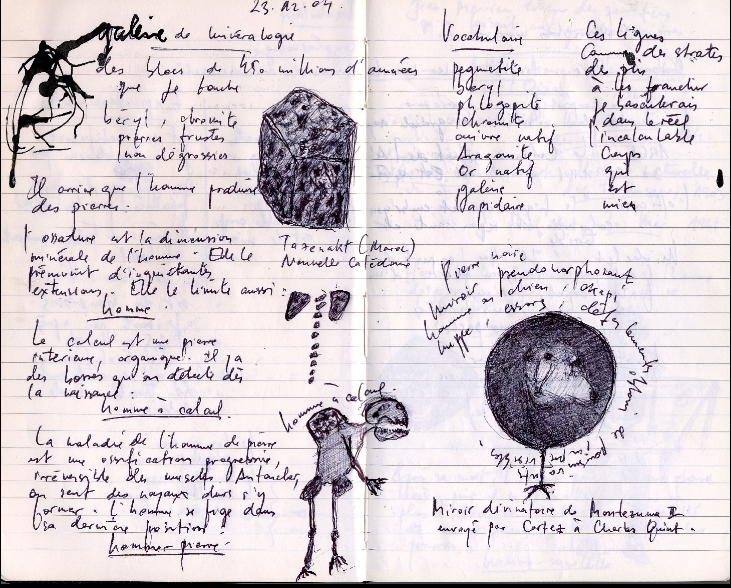 23.12.04.
galerie de minéralogie
des blocs de 450 millions d'années
que je touche
béryl, chromite
pierres frustes
non dégrossies
Il arrive que l'homme produise
des pierres.
l'ossature est la dimension
minérale de l'homme. Elle le
prémunit d'inquiétantes
extensions. Elle le limite aussi.
homme.
Le calcul est une pierre
intérieure, organique. Il y a
des bosses qu'on détecte dès
la naissance.
homme à calcul.
La maladie de l'homme de pierre
est une ossification progressive,
irréversible des muscles.
on sent des noyaux durs s'y
former. l'homme se fige dans
sa dernière position.
homme-pierre.
Tazenakt (Maroc)
Nouvelle Calédonie
homme à calcul.
Vocabulaire
pegmatite
béryl
phlogopite
chromite
cuivre natif
Aragonite
Or natif
galène
lapidaire
Ces lignes
comme des strates
de plus
à les franchir
je basculerais
dans le réel
l'incalculable
corps
qui
est
mien
Pierre noire
miroir pseudomorphosant
homme en chien,
huppé,
Miroir divinatoire de Montezuma II
envoyé par Cortez à Charles Quint.